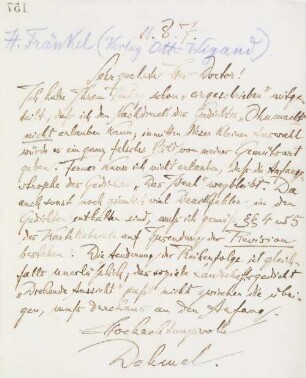 157
11.8.
H. Fränkel (Verlag Otto Wigand).
Sehr geehrter Herr Doctor!
Ich habe Ihrem schon mitge-
teilt, daß ich den Nachdruck des Gedichtes „Ohnmacht"
nicht erlauben kann; inmitten dieser kleinen Auswahl
würde es ein ganz falsches Bild von meiner Gemütsart
geben. Ferner kann ich nicht erlauben, daß die Anfangs-
strophe des Gedichtes „Das Ideal" wegbleibt. Da
auch sonst noch viel Druckfehler in den
Gedichten enthalten sind, muß ich gemäß §§ 4 u. 5
des auf Zusendung der Revision
bestehen. Die Aenderung der Reihenfolge ist gleich-
falls unerläßlich; das Landschaftsgedicht
„Drohende Aussicht" paßt nicht zwischen die übri-
gen, muß durchaus an den Anfang.
Hochachtungsvoll
Dehmel.